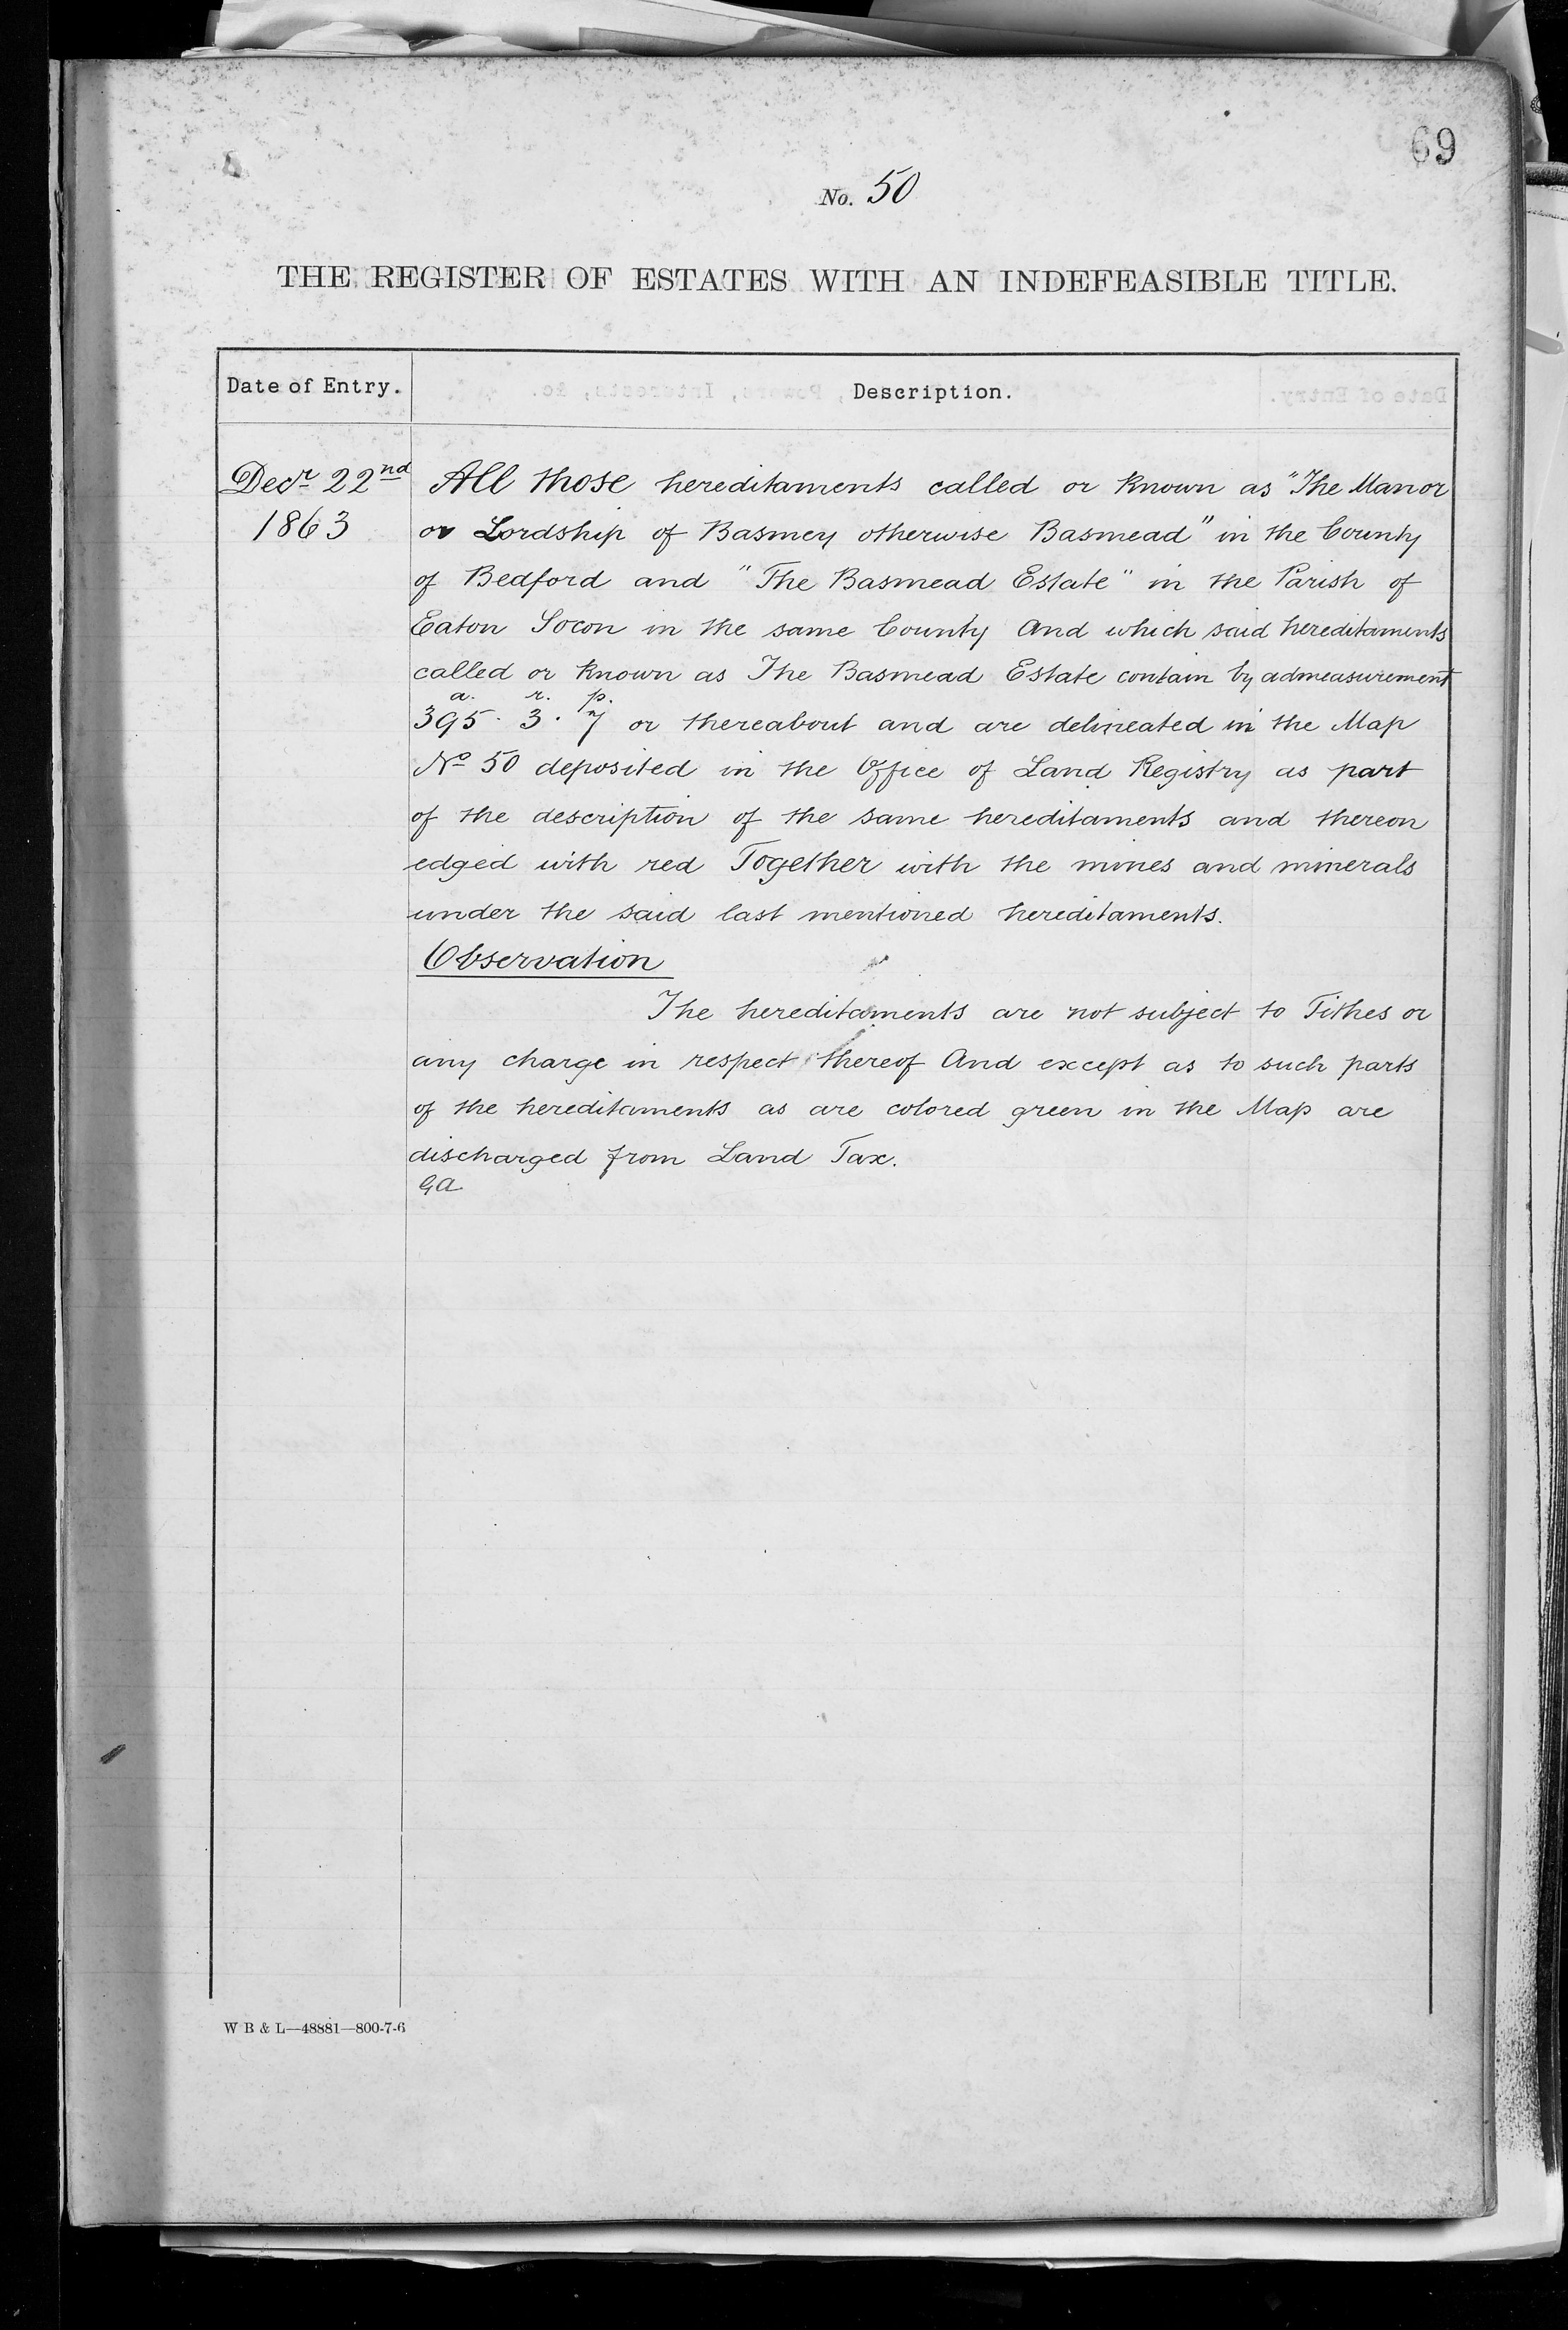 69
No. 50
THE REGISTER OF ESTATES WITH AN INDEFEASIBLE TITLE.
Date of Entry.
Description.
Decr 22nd
1863
All those hereditaments called or known as "The Manor
or Lordship of Basmey otherwise Basmead" in the County
of Bedford and "The Basmead Estate" in the Parish of
Eaton Socon in the same County And which said hereditaments
called or known as The Basmead Estate contain by admeasurement
a. r. p.
395. 3. 7 or thereabout and are delineated in the Map
No 50 deposited in the Office of Land Registry as part
of the description of the same hereditaments and thereon
edged with red Together with the mines and minerals
under the said last mentioned hereditaments.
Observation
The hereditaments are not subject to Tithes or
any charge in respect thereof And except as to such parts
of the hereditaments as are colored green in the Map are
discharged from Land Tax.
GA
W B & L—48881—800-7-6